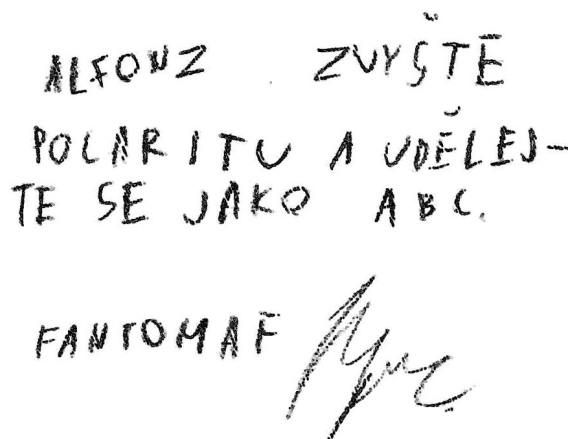 ALFONZ ZVYŠTĚ
POLARITU A UDĚLEJ-
TE SE JAKO ABC.
FANTOMAF